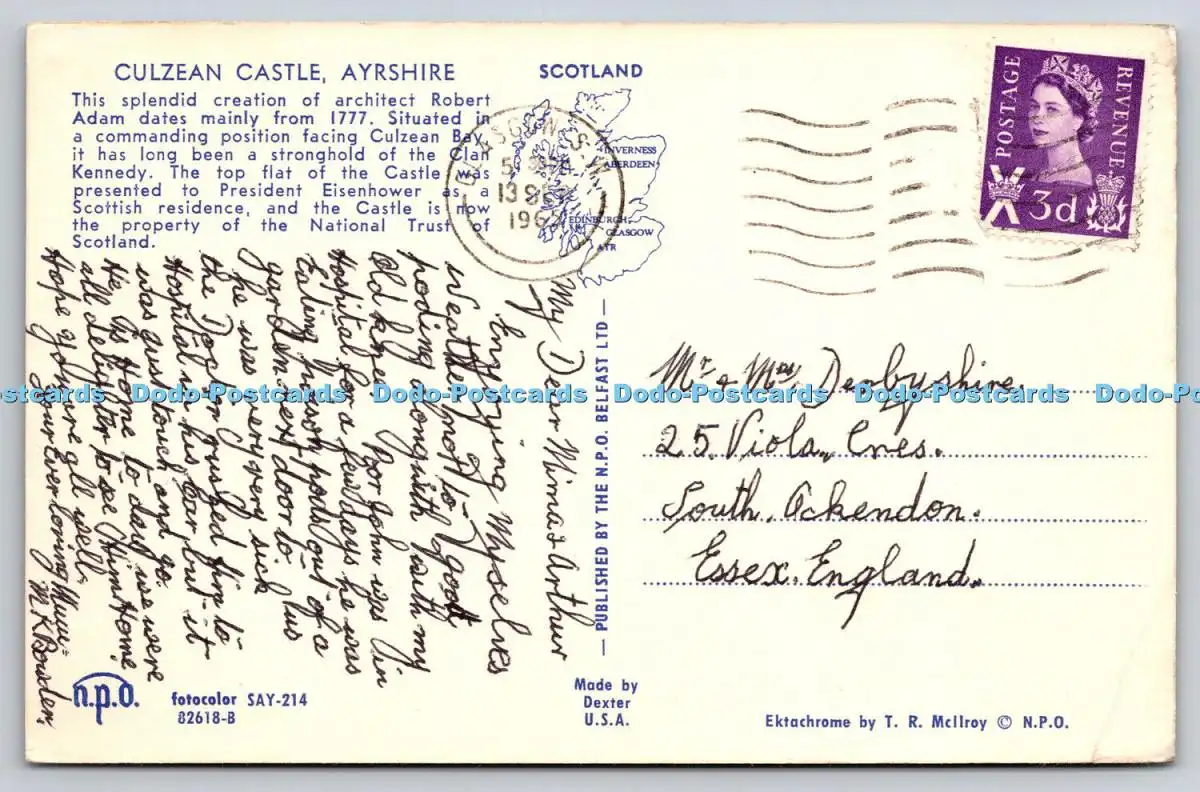 CULZEAN CASTLE, AYRSHIRE
This splendid creation of architect Robert
Adam dates mainly from 1777. Situated in
a commanding position facing Culzean Bay,
it has long been a stronghold of the Clan
Kennedy. The top flat of the Castle was
presented to President Eisenhower as a
Scottish residence, and the Castle is now
the property of the National Trust of
Scotland.
SCOTLAND
INVERNESS
ABERDEEN
EDINBURGH
GLASGOW
AYR
GLASGOW S.W.
13
196
POSTAGE
REVENUE
3d
My Dear Minnie & Arthur
Enjoying Myselves
Weather not to good
poding along with my
Old knee. Poor John was in
Hospital for a few days he was
Eating hawh pods out of a
garden next door to us
he was very very sick
the Doctor rushed him to
Hospital in his car but it
was just touch and go.
He is Home to day we were
all delighted to see Him Home
Hope you are all well.
Your Ever loving Mum
M K Bowden.
— PUBLISHED BY THE N.P.O. BELFAST LTD —
Mr & Mrs Derbyshire
25. Viola, Cres.
South, Ockendon.
Essex. England.
Dodo-Postcards Dodo-Postcards Dodo-Postcards Dodo-Postcards Dodo-Postcards
n.p.o.
fotocolor SAY-214
82618-B
Made by
Dexter
U.S.A.
Ektachrome by T. R. McIlroy © N.P.O.